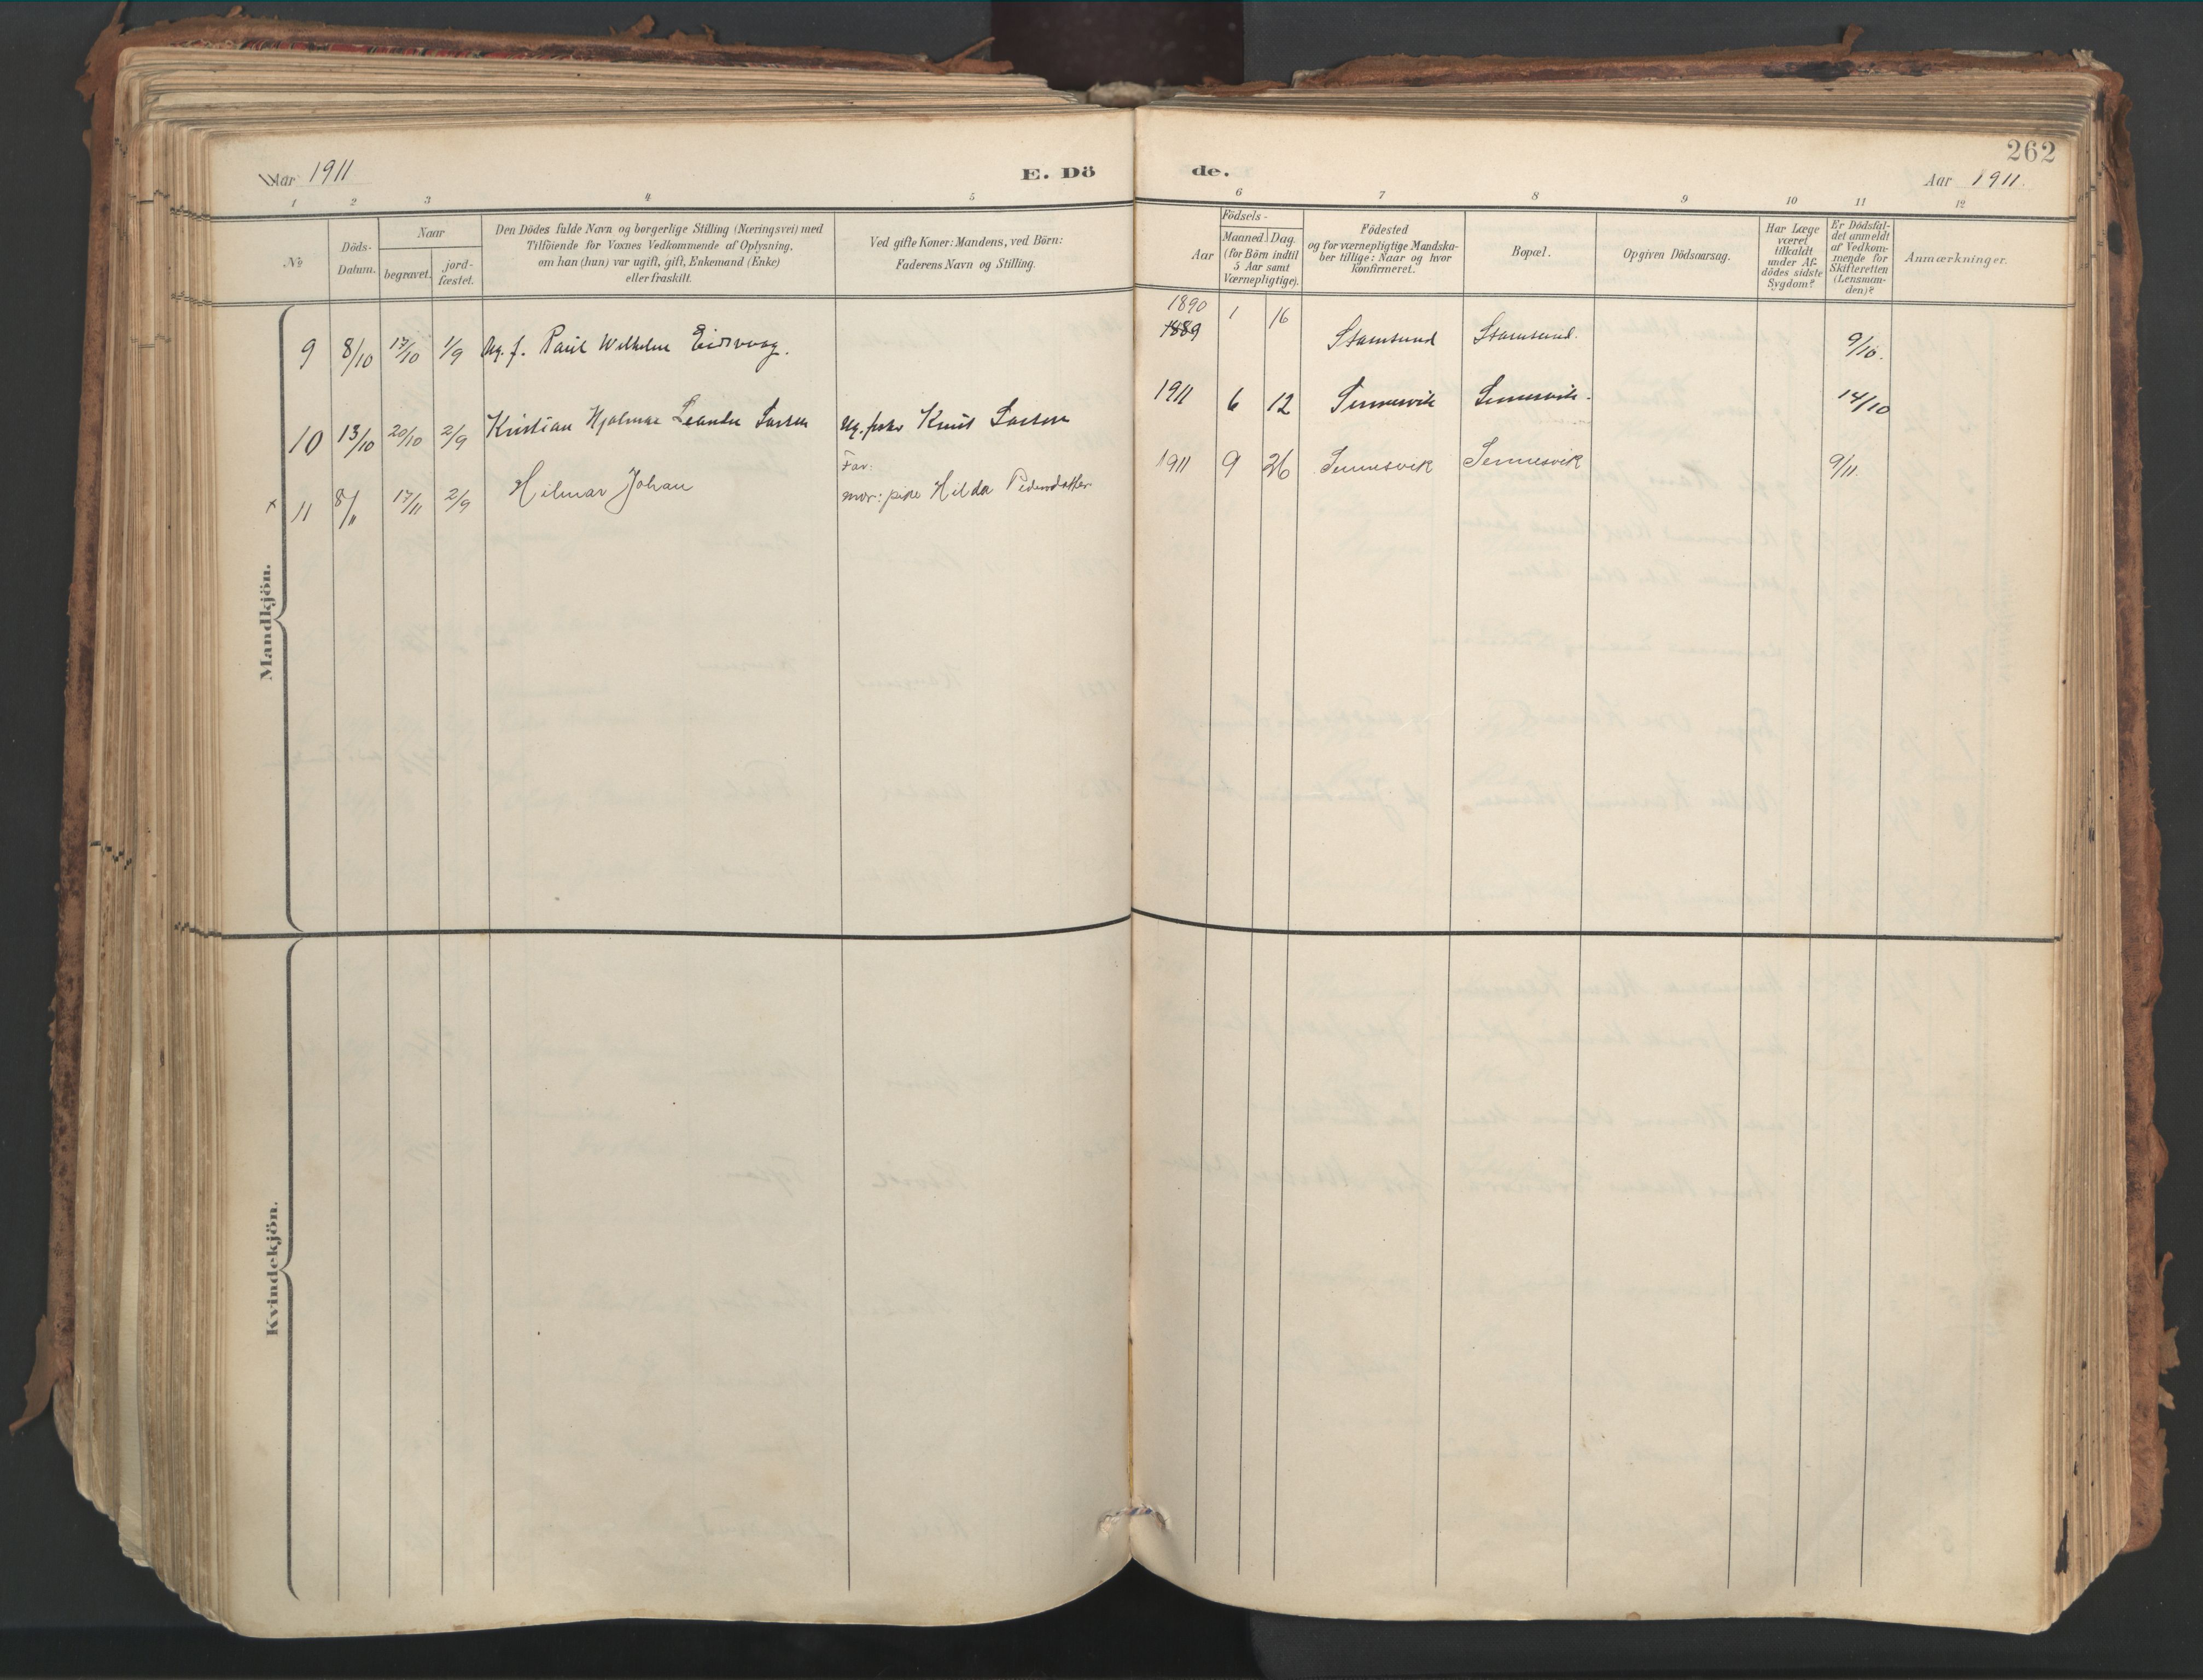 262
Aar 1911
E. Dö
de.
Aar 1911.
1 2 3 4 5 6 7 8 9 10 11 12
No
Döds-
Datum.
Naar
begravet.
jord-
fæstet.
Den Dödes fulde Navn og borgerlige Stilling (Næringsvei) med
Tilföiende for Voxnes Vedkommende af Oplysning,
om han (hun) var ugift, gift, Enkemand (Enke)
eller fraskilt.
Ved gifte Koner: Mandens, ved Börn:
Faderens Navn og Stilling.
Födsels-
Aar
Maaned. Dag.
(for Börn indtil
5 Aar samt
Værnepligtige).
Födested
og for værnepligtige Mandska-
ber tillige: Naar og hvor
konfirmeret.
Bopæl.
Opgiven Dödsaarsag.
Har Læge
været
tilkaldt
under Af-
dödes sidste
Sygdom?
Er Dödsfal-
det anmeldt
af Vedkom-
mende for
Skifteretten
(Lensman-
den)?
Anmærkninger.
Mandkjön.
1890
1889
9 8/10 17/10 1/9 Ug. f. Paul Wilhelm Eidsvaag. 1 16 Stamsund Stamsund. 9/10.
10 13/10 20/10 2/9 Kristian Hjalmar Leander Larsen Ug. fisker Knut Larsen 1911 6 12 Sennesvik Sennesvik. 14/10
Far:
x 11 8/11 17/11 2/9 Hilmar Johan mor: pike Hilda Pedersdatter 1911 9 26 Sennesvik Sennesvik 9/11.
Kvindekjön.